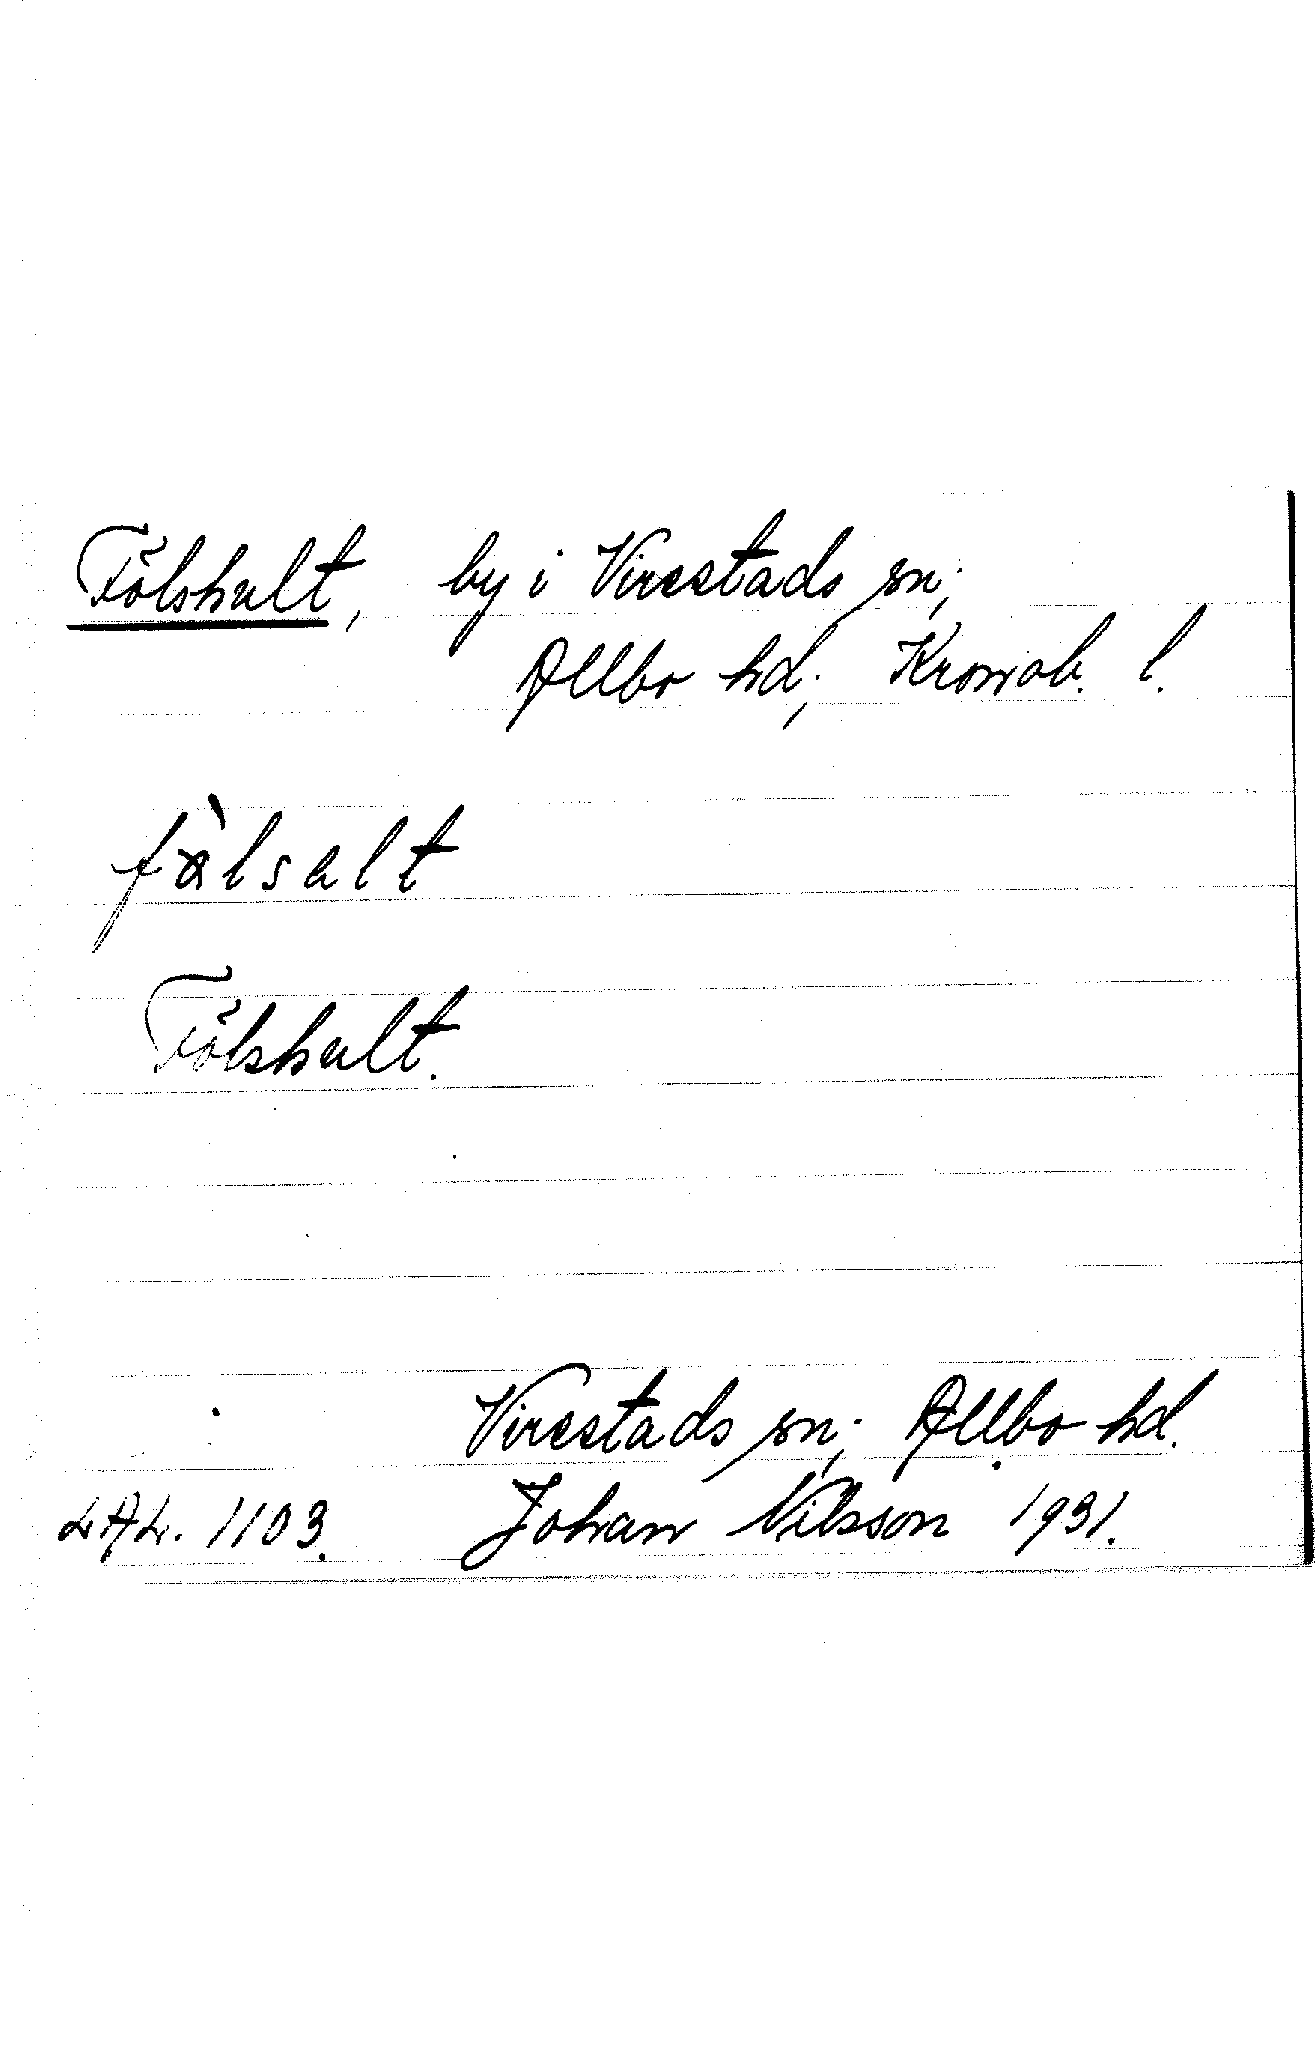 Fölshult, by i Virestads sn;
Allbo hd; Kronob. l.
fàlsalt
Fölshult.
Virestads sn; Allbo hd.
LAL. 1103. Johan Nilsson 1931.